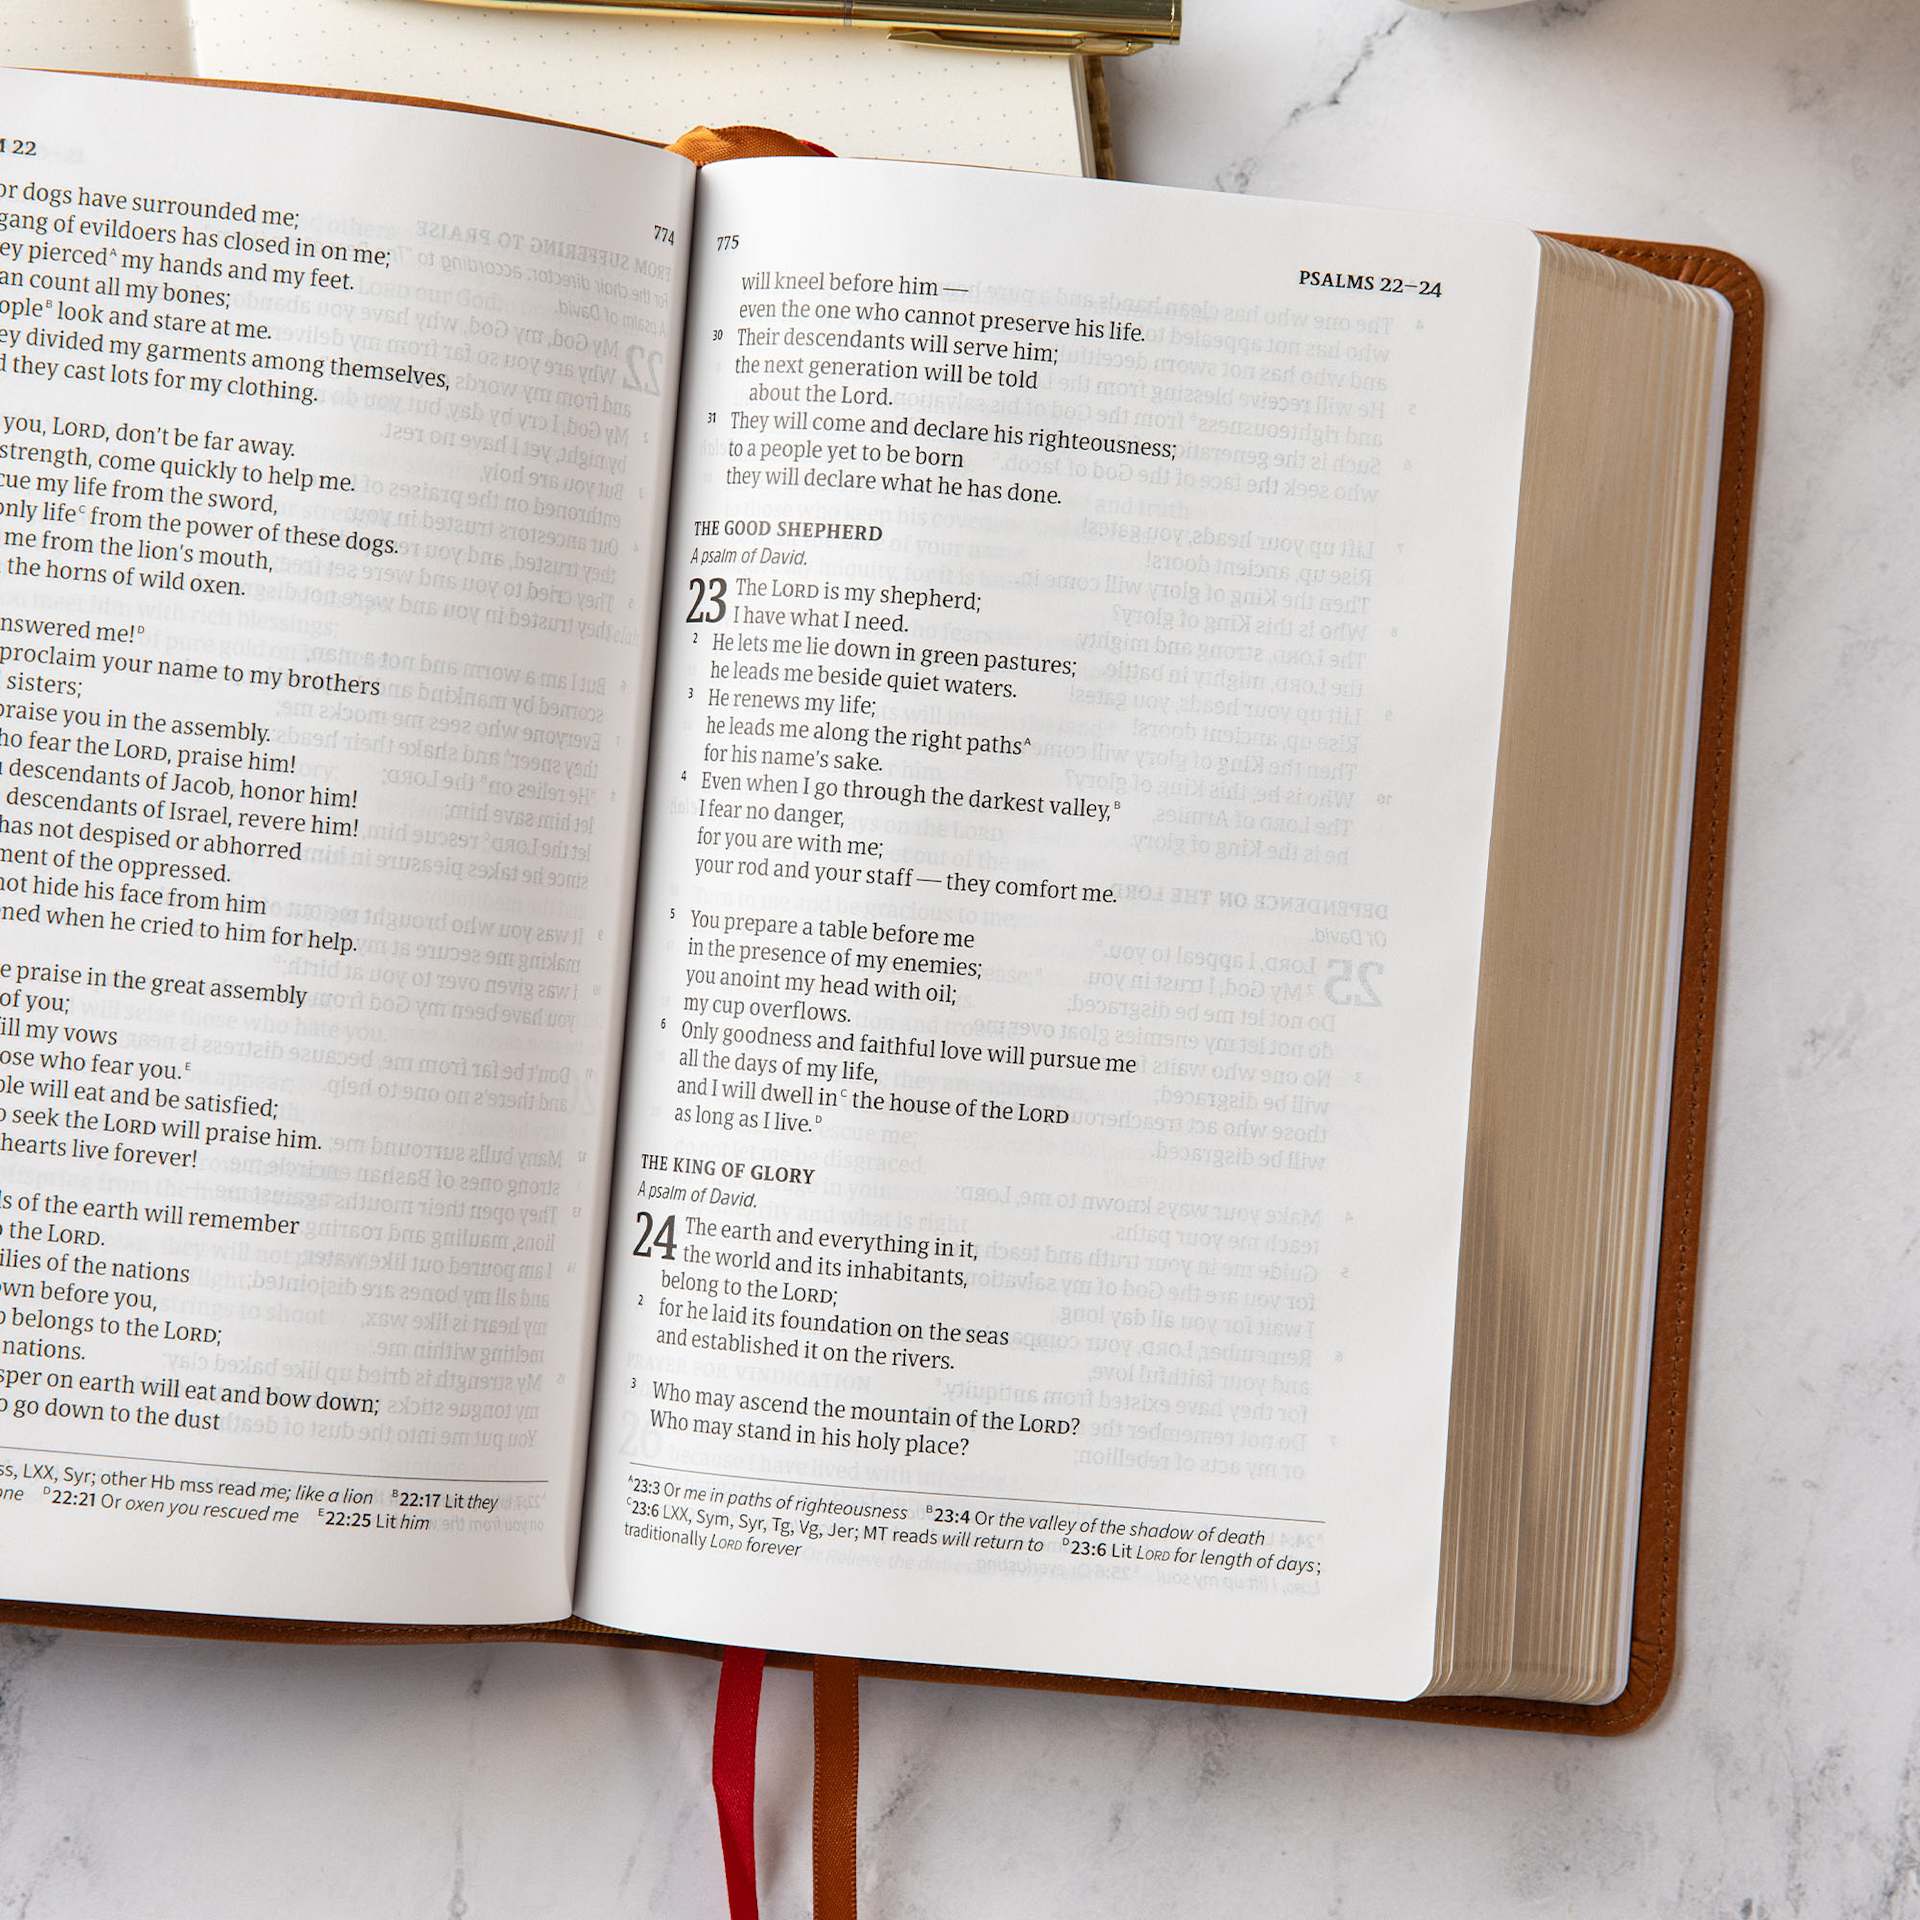 22
or dogs have surrounded me;
gang of evildoers has closed in on me;
ey pierced^A my hands and my feet.
an count all my bones;
ople^B look and stare at me.
ey divided my garments among themselves,
d they cast lots for my clothing.
you, LORD, don't be far away.
strength, come quickly to help me.
cue my life from the sword,
only life^C from the power of these dogs.
me from the lion's mouth,
the horns of wild oxen.
nswered me!^D
proclaim your name to my brothers
sisters;
praise you in the assembly.
ho fear the LORD, praise him!
descendants of Jacob, honor him!
descendants of Israel, revere him!
has not despised or abhorred
ment of the oppressed.
not hide his face from him
ned when he cried to him for help.
e praise in the great assembly
of you;
fill my vows
ose who fear you.^E
ble will eat and be satisfied;
o seek the LORD will praise him.
hearts live forever!
ds of the earth will remember
o the LORD.
ilies of the nations
own before you,
p belongs to the LORD;
nations.
sper on earth will eat and bow down;
o go down to the dust
ss, LXX, Syr; other Hb mss read me; like a lion ^B22:17 Lit they
one ^D22:21 Or oxen you rescued me ^E22:25 Lit him
774
775
PSALMS 22–24
will kneel before him —
even the one who cannot preserve his life.
30 Their descendants will serve him;
the next generation will be told
about the Lord.
31 They will come and declare his righteousness;
to a people yet to be born
they will declare what he has done.
THE GOOD SHEPHERD
A psalm of David.
23 The LORD is my shepherd;
I have what I need.
2 He lets me lie down in green pastures;
he leads me beside quiet waters.
3 He renews my life;
he leads me along the right paths^A
for his name's sake.
4 Even when I go through the darkest valley,^B
I fear no danger,
for you are with me;
your rod and your staff — they comfort me.
5 You prepare a table before me
in the presence of my enemies;
you anoint my head with oil;
my cup overflows.
6 Only goodness and faithful love will pursue me
all the days of my life,
and I will dwell in^C the house of the LORD
as long as I live.^D
THE KING OF GLORY
A psalm of David.
24 The earth and everything in it,
the world and its inhabitants,
belong to the LORD;
2 for he laid its foundation on the seas
and established it on the rivers.
3 Who may ascend the mountain of the LORD?
Who may stand in his holy place?
^A23:3 Or me in paths of righteousness ^B23:4 Or the valley of the shadow of death
^C23:6 LXX, Sym, Syr, Tg, Vg, Jer; MT reads will return to ^D23:6 Lit LORD for length of days;
traditionally LORD forever